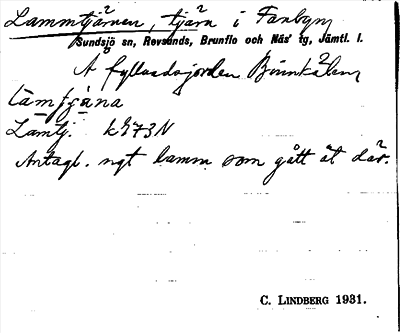 Lammtjärnen, tjärn i Fanbyn
Sundsjö sn, Revsunds, Brunflo och Näs' tg, Jämtl. l.
Å fyllnadsjorden Binnkälen
Lamtj. k973N
Antagl. ngt lamm som gått åt där.
C. LINDBERG 1931.